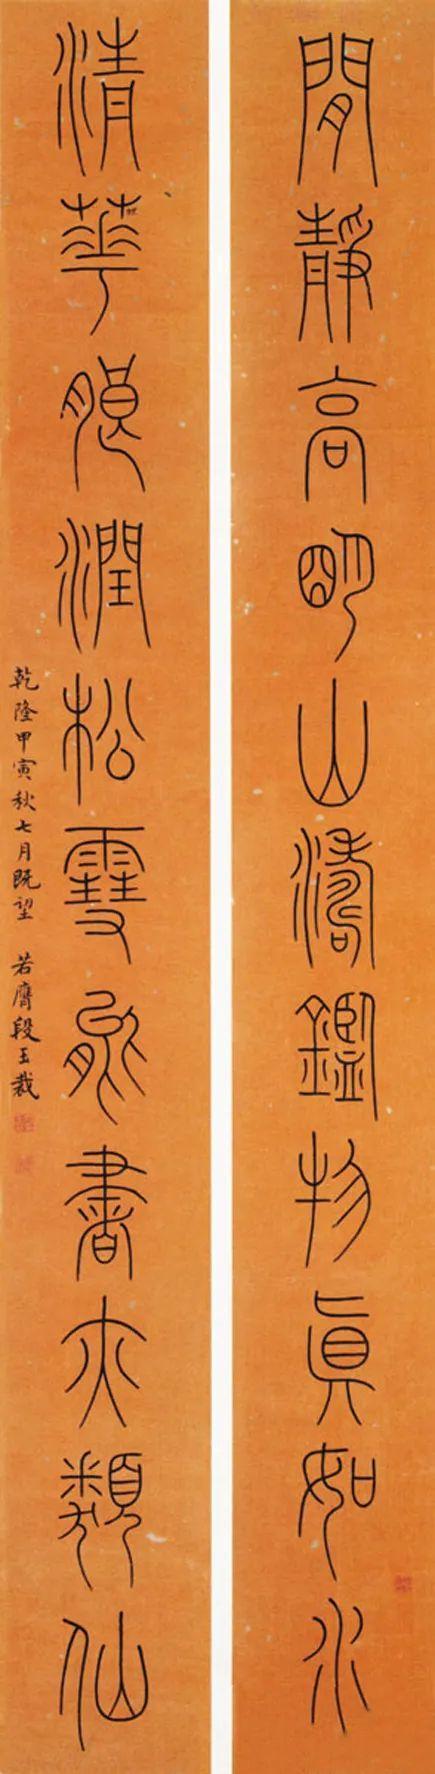 閒靜高朙山濤鑑物眞如水
清華腴潤松雪書亦類仙
乾隆甲寅秋七月既望 若膺段玉裁